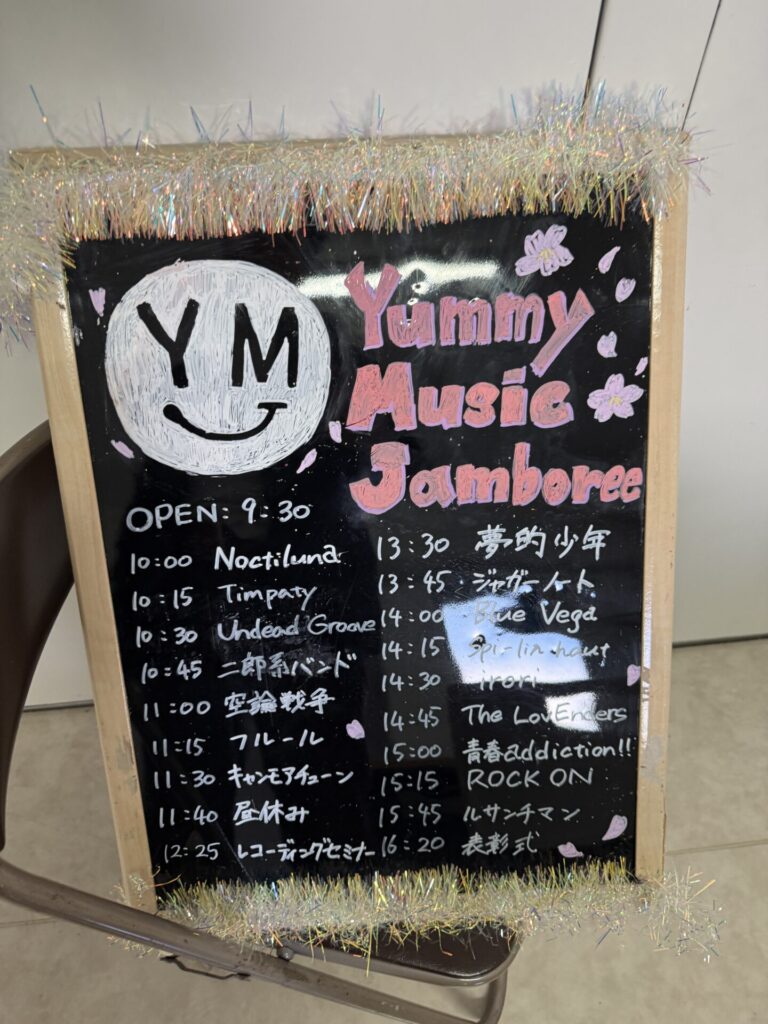 YM
Yummy
Music
Jamboree
OPEN: 9:30
10:00 Noctiluna
10:15 Timpaty
10:30 Undead Groove
10:45 二郎系バンド
11:00 空論戦争
11:15 フルール
11:30 キャンモアチューン
11:40 昼休み
12:25 レコーディングセミナー
13:30 夢的少年
13:45 ジャガーノート
14:00 Blue Vega
14:15 Spi-lin haut
14:30 irori
14:45 The LovEnders
15:00 青春addiction!!
15:15 ROCK ON
15:45 ルサンチマン
16:20 表彰式